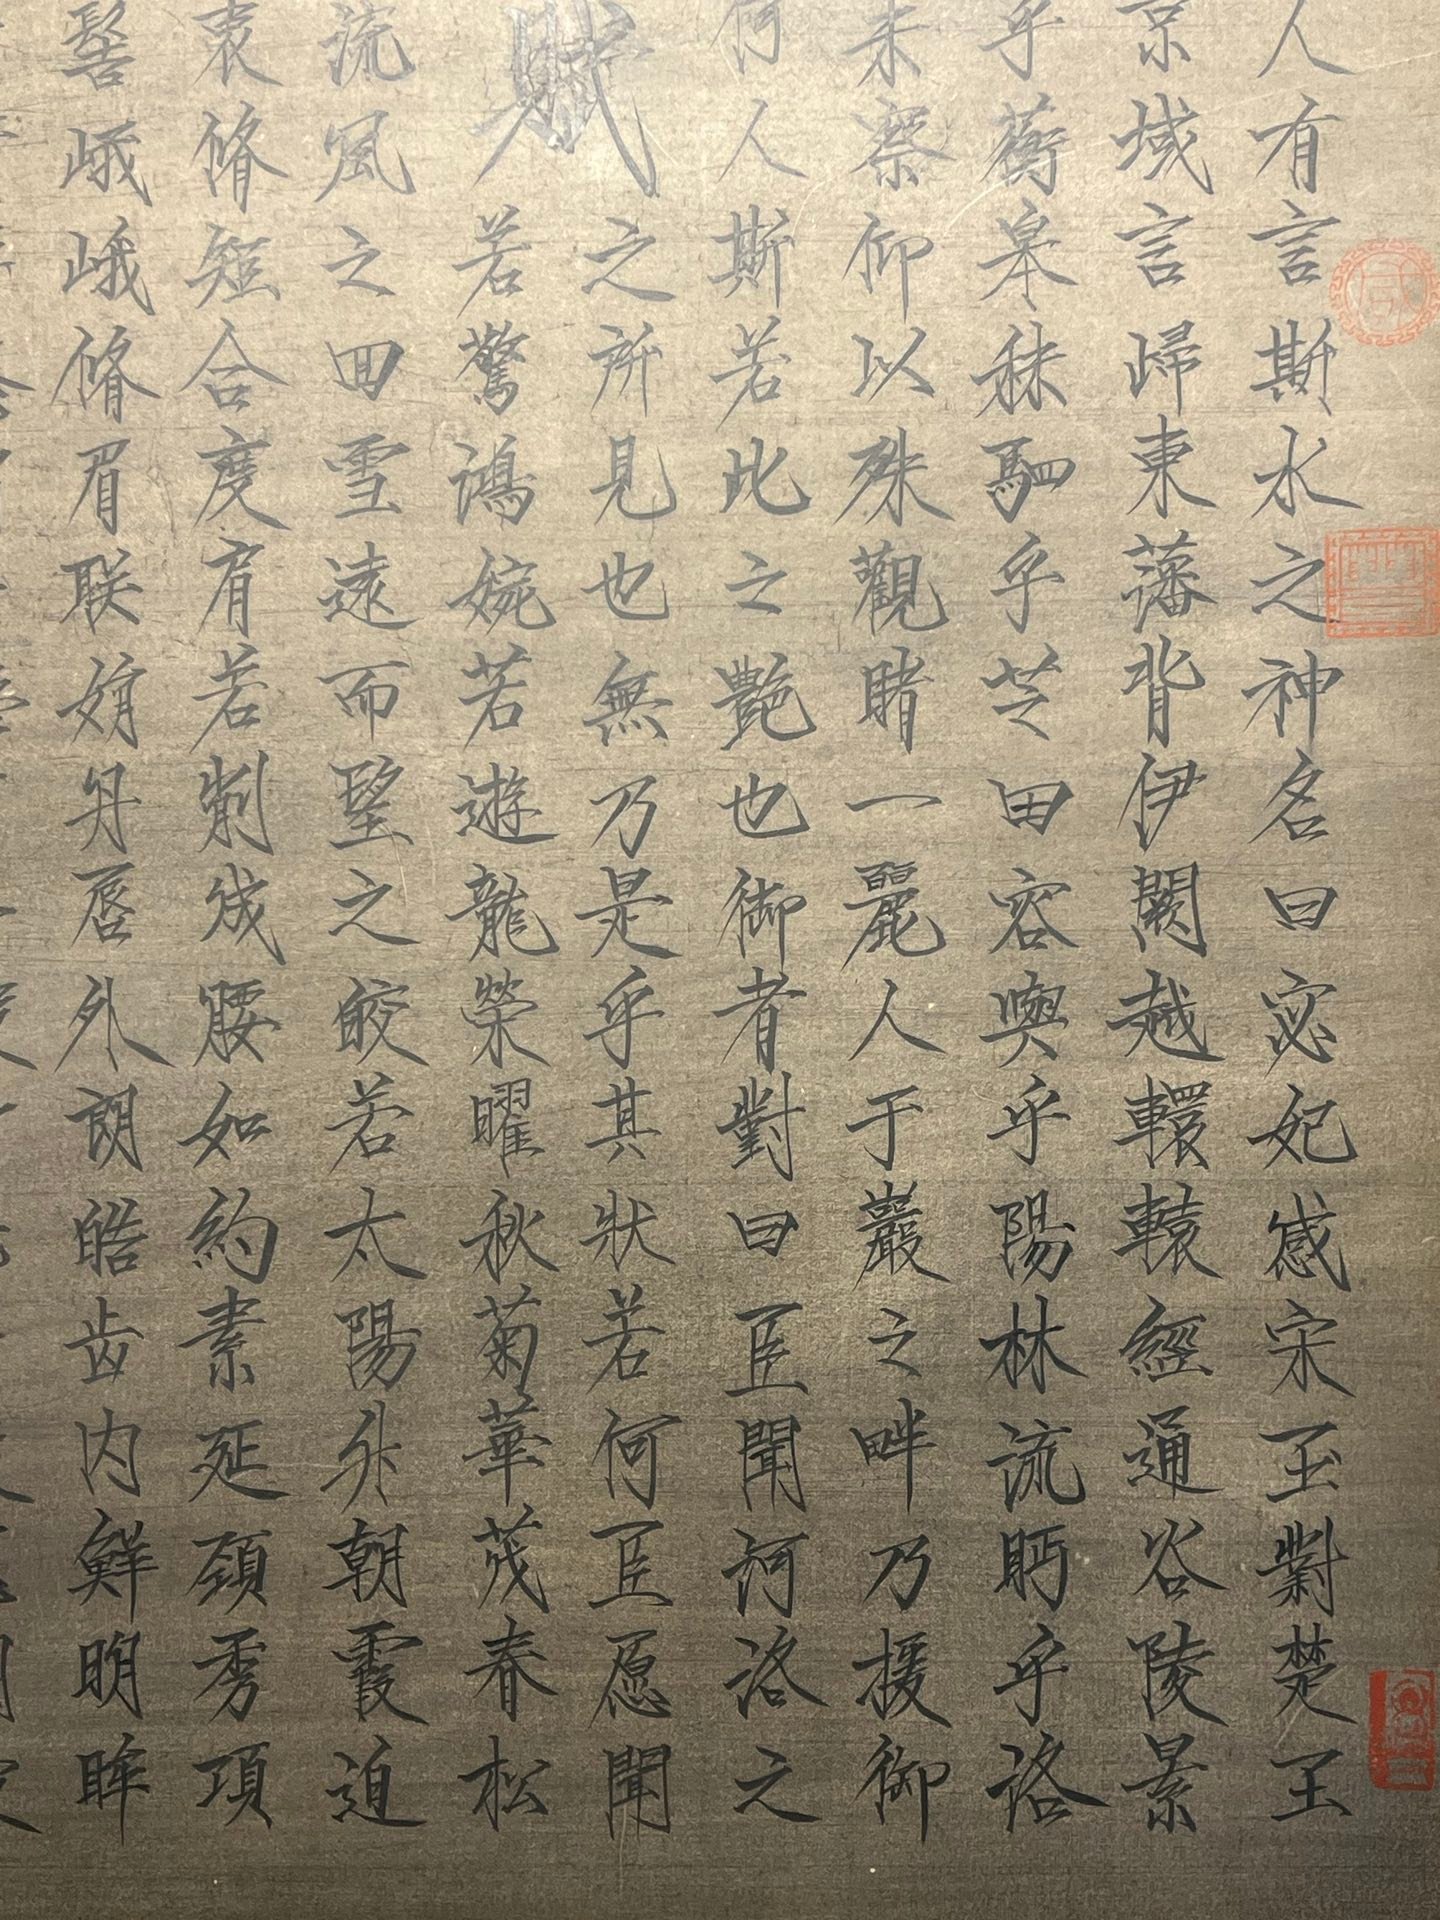 人有言斯水之神名曰宓妃感宋玉對楚王
京域言歸東藩背伊闕越轘轅經通谷陵景
乎蘅皋秣駟乎芝田容與乎陽林流眄乎洛
未察仰以殊觀睹一麗人于巖之畔乃援御
何人斯若此之艷也御者對曰臣聞河洛之
賦
之所見也無乃是乎其狀若何臣愿聞
若驚鴻婉若遊龍榮曜秋菊華茂春松
流風之回雪遠而望之皎若太陽升朝霞迫
衷脩短合度肩若削成腰如約素延頸秀項
髻峨峨脩眉联娟丹唇外朗皓齿内鮮明眸